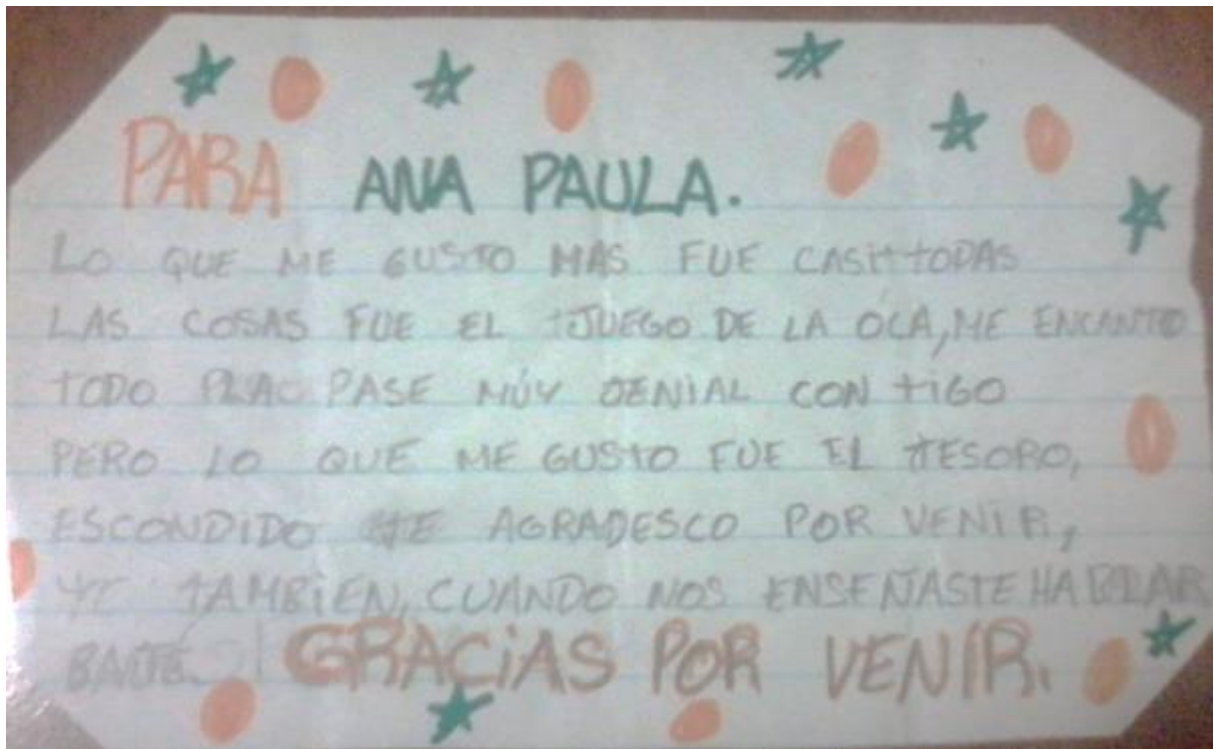 PARA ANA PAULA.
LO QUE ME GUSTO MAS FUE CASI TODAS
LAS COSAS FUE EL JUEGO DE LA OCA, ME ENCANTO
TODO PASE MÚY GENIAL CON TIGO
PERO LO QUE ME GUSTO FUE EL TESORO,
ESCONDIDO TE AGRADESCO POR VENIR,
TAMBIEN, CUANDO NOS ENSEÑASTE HABLAR
GRACIAS POR VENIR.